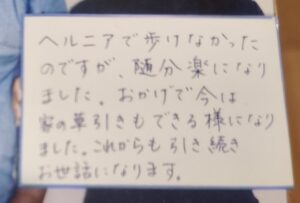 ヘルニアで歩けなかった
のですが、随分楽になり
ました。おかげで今は
家の草引きもできる様になり
ました。これからも引き続き
お世話になります。